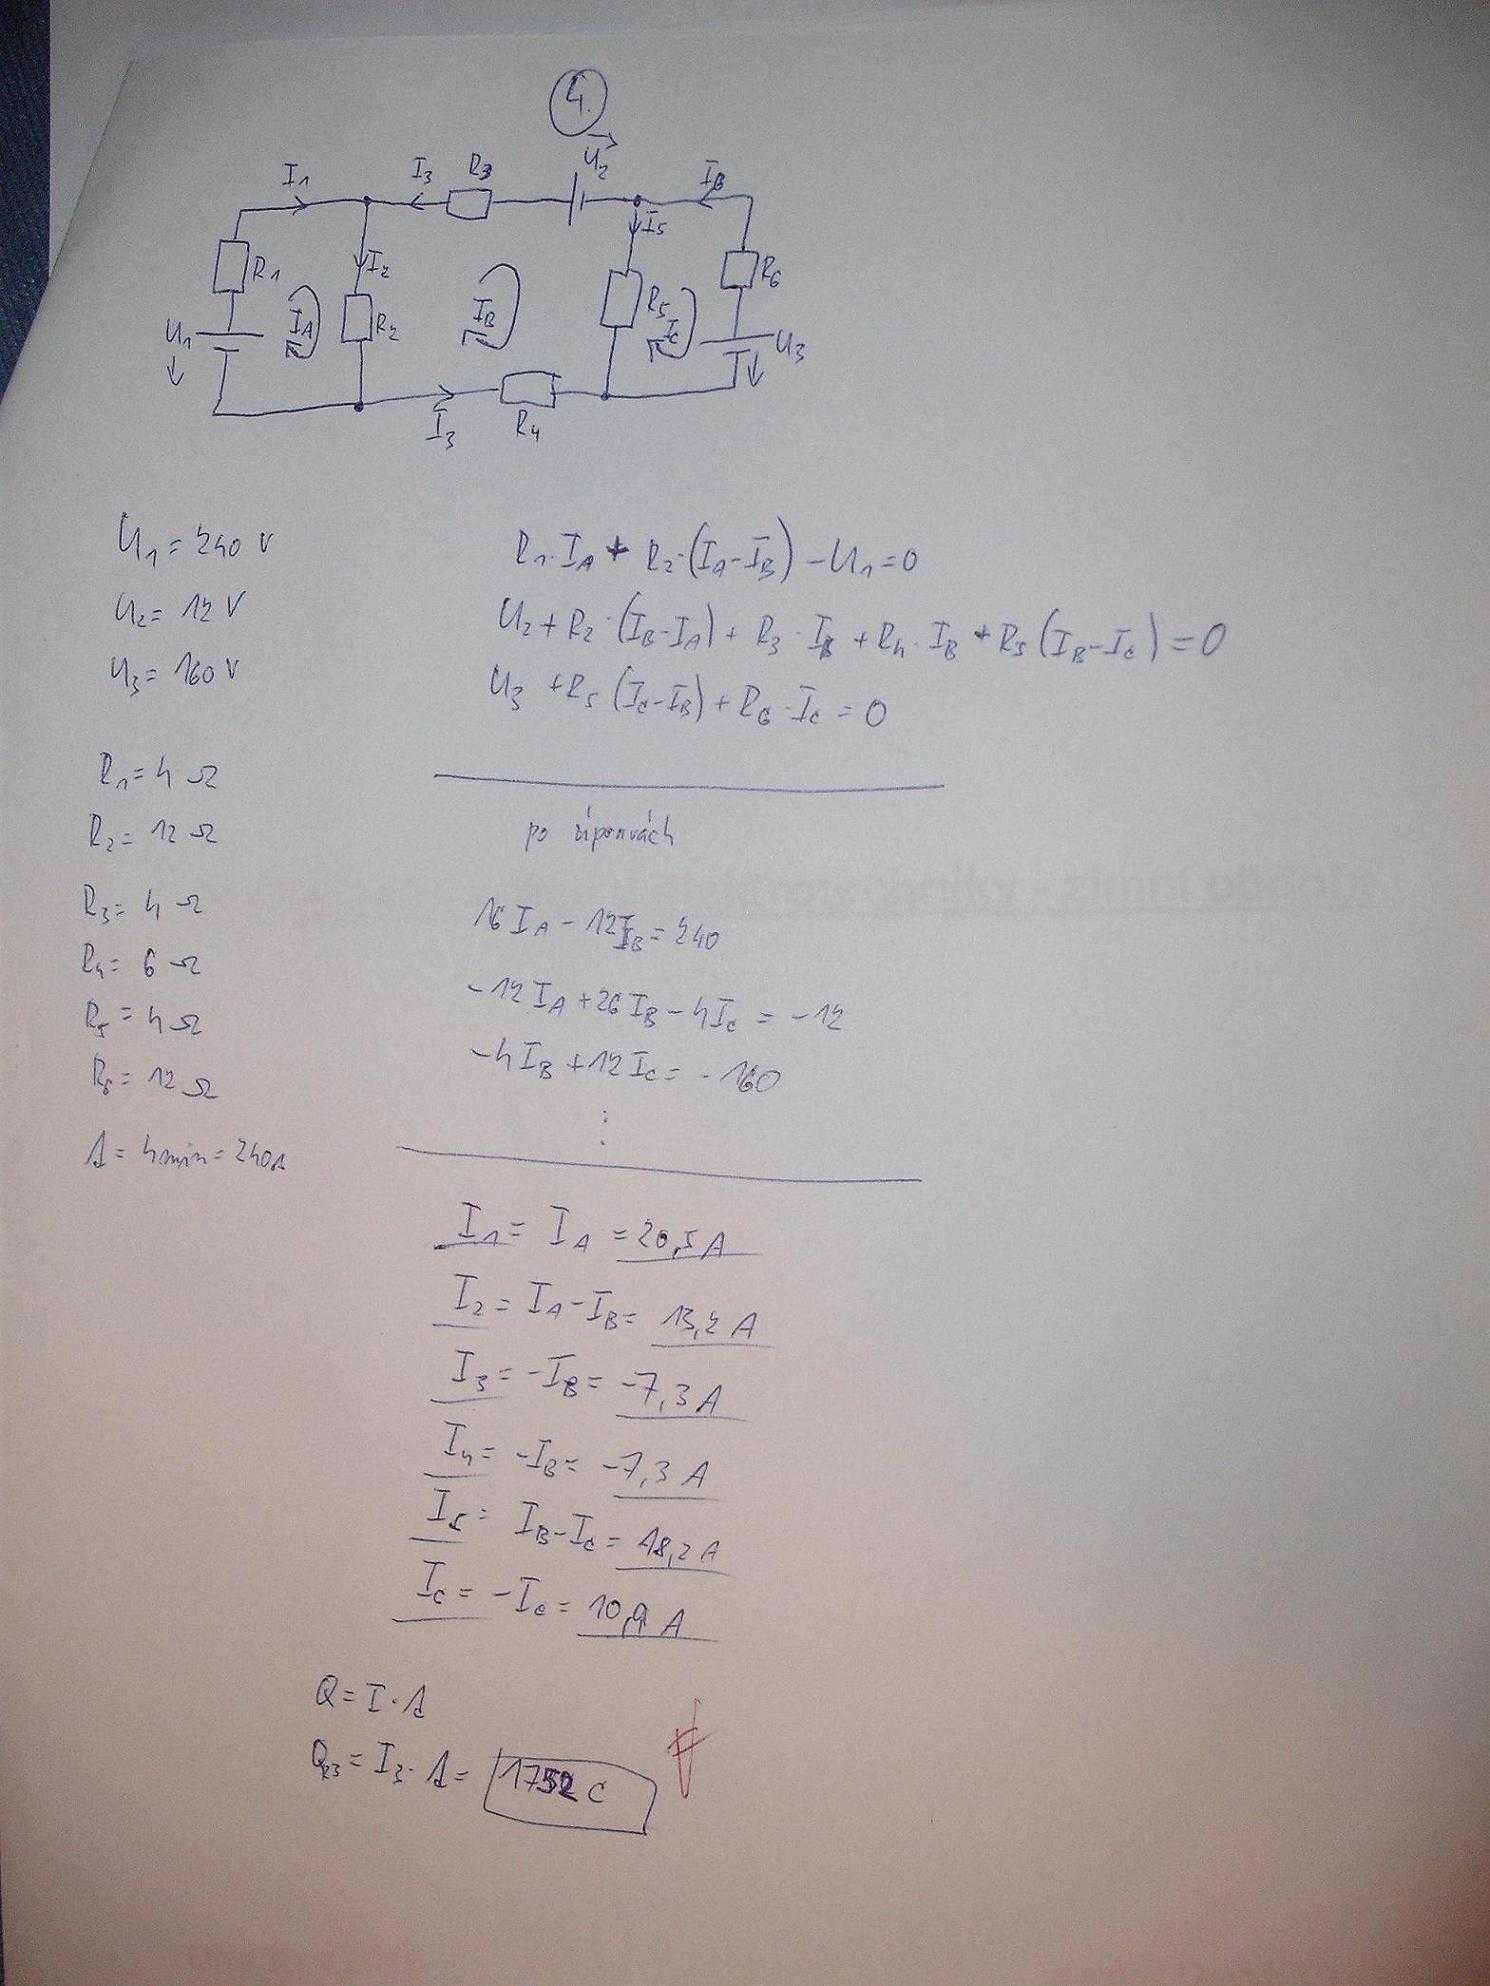 4.
U₂
I₁ I₃ R₃ I₆
I₂ I₅
R₁ R₂ R₅ R₆
I_A I_B I_C
U₁ U₃
I₃ R₄
U₁ = 240 V
U₂ = 12 V
U₃ = 160 V
R₁ = 4 Ω
R₂ = 12 Ω
R₃ = 4 Ω
R₄ = 6 Ω
R₅ = 4 Ω
R₆ = 12 Ω
t = 4 min = 240 s
R₁·I_A + R₂·(I_A - I_B) - U₁ = 0
U₂ + R₂·(I_B - I_A) + R₃·I_B + R₄·I_B + R₅(I_B - I_C) = 0
U₃ + R₅(I_C - I_B) + R₆·I_C = 0
po úpravách
16I_A - 12I_B = 240
-12I_A + 26I_B - 4I_C = -12
-4I_B + 12I_C = -160
⋮
I₁ = I_A = 20,5 A
I₂ = I_A - I_B = 13,2 A
I₃ = -I_B = -7,3 A
I₄ = -I_B = -7,3 A
I₅ = I_B - I_C = 18,2 A
I_C = -I_C = 10,9 A
Q = I·t
Q_R3 = I₃·t = 1752 C